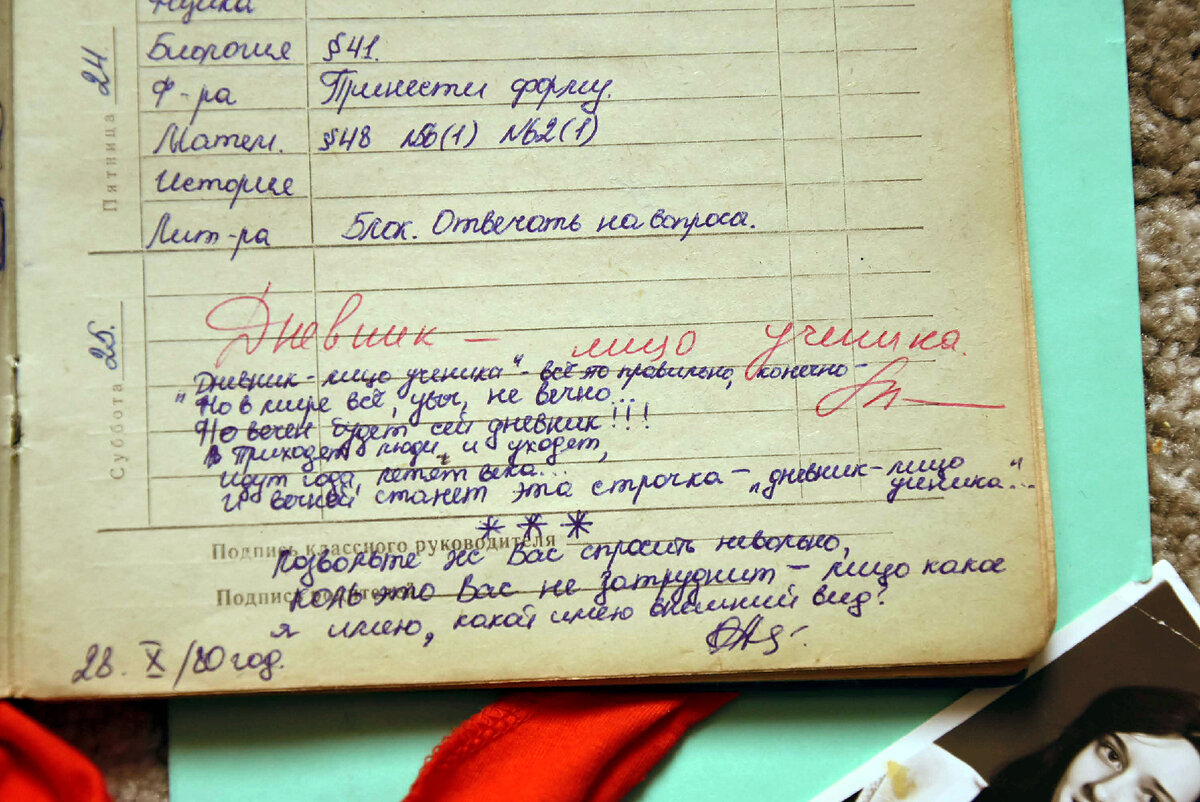 Музыка
Пятница 24
Биология §41.
Ф-ра Принести форму.
Матем. §48 №56(1) №62(1)
История
Лит-ра Блок. Отвечать на вопроса.
Суббота 25.
Дневник — лицо ученика.
"Дневник-лицо ученика"- всё это правильно, конечно-
Но в мире всё, увы, не вечно...
Но вечен будет сей дневник!!!
Приходят люди, и уходят,
Идут года, летят века...
И вечной станет эта строчка- „дневник-лицо
ученика..."
* * *
Подпись классного руководителя
Позвольте же Вас спросить невольно,
Подпись родителей
коль это Вас не затруднит - лицо какое
я имею, какой имею внешний вид?
28. X /80 год.